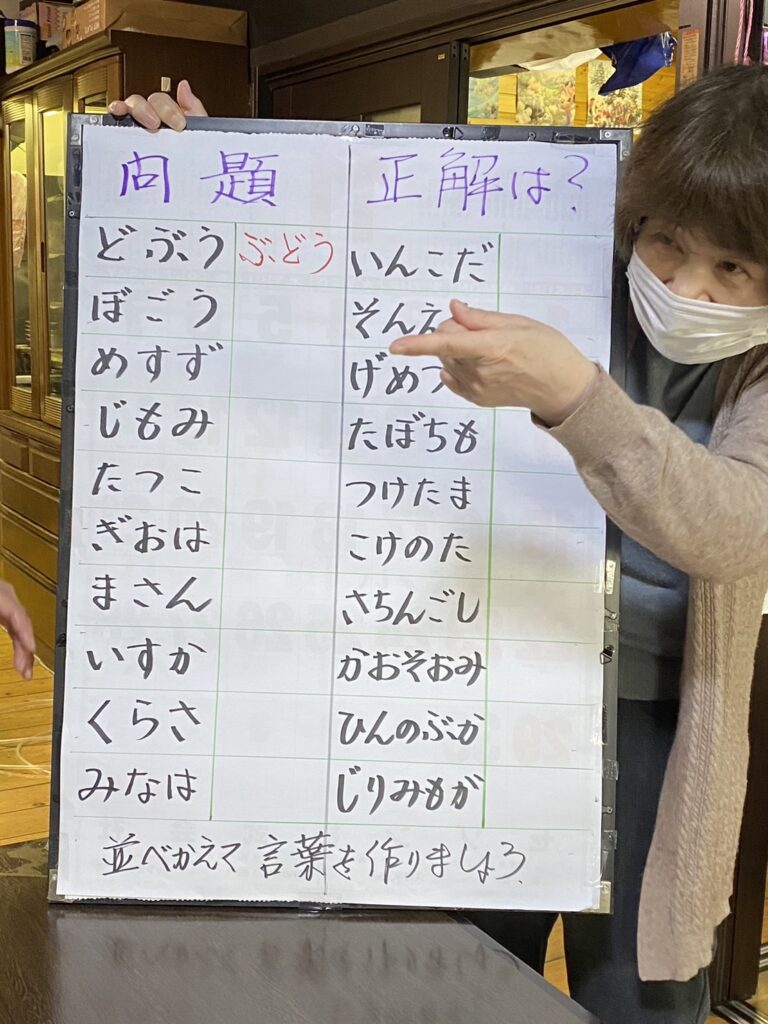 問題 正解は？
どぶう ぶどう いんこだ
ぼごう そんえ
めすず げめつ
じもみ たぼちも
たつこ つけたま
ぎおは こけのた
まさん さちんごし
いすか かおそおみ
くらさ ひんのぶか
みなは じりみもが
並べかえて言葉を作りましょう